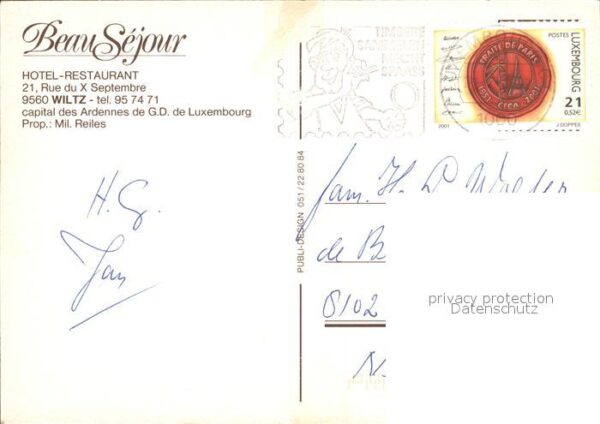 Beau Séjour
HOTEL-RESTAURANT
21, Rue du X Septembre
9560 WILTZ - tel. 95 74 71
capital des Ardennes de G.D. de Luxembourg
Prop.: Mil. Reiles
H. G.
Jan
PUBLI-DESIGN 051/22 80 84
TIMBERE
SAMMELEN
MECHT
SPAASS
TRAITÉ DE PARIS
1951 - CECA - 2001
POSTES
LUXEMBOURG
21
0,52€
2001
J. DOPPÉE
Fam. H. D
de B
6102
N.
privacy protection
Datenschutz